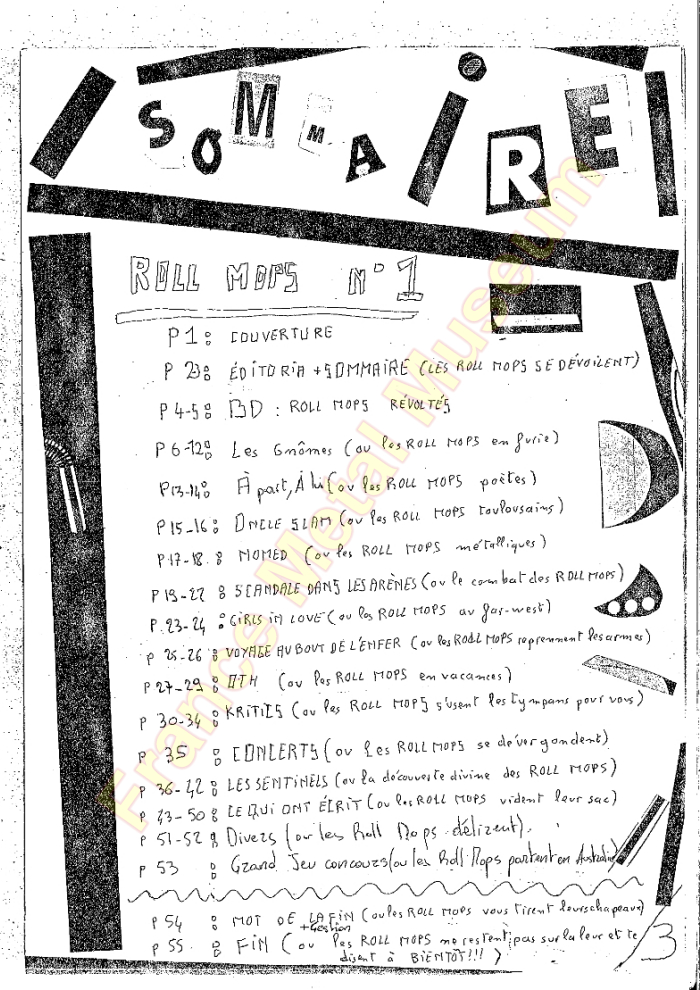 SOMMAIRE
ROLL MOPS N°1
P1: COUVERTURE
P 23: ÉDITORIA + SOMMAIRE (LES ROLL MOPS SE DÉVOILENT)
P 4-5: BD : ROLL MOPS RÉVOLTÉS
P 6-12: Les Gnômes (ou les ROLL MOPS en furie)
P13-14: À part, À lui (ou les ROLL MOPS poètes)
P15-16: ONCLE SLAM (ou les ROLL MOPS toulousains)
P.17-18: MOMED (ou les ROLL MOPS métalliques)
P19-22: SCANDALE DANS LES ARÈNES (ou le combat des ROLL MOPS)
P.23-24: GIRLS IN LOVE (ou les ROLL MOPS au far-west)
P 25-26: VOYAGE AU BOUT DE L'ENFER (ou les ROLL MOPS reprennent les armes)
P27-29: OTH (ou les ROLL MOPS en vacances)
P 30-34: KRITICS (ou les ROLL MOPS s'usent les tympans pour vous)
P 35: CONCERTS (ou les ROLL MOPS se dévergondent)
P 36-42: LES SENTINELS (ou la découverte divine des ROLL MOPS)
P 43-50: CE QUI ONT ÉCRIT (ou les ROLL MOPS vident leur sac)
P 51-52: Divers (ou les Roll Mops délirent).
P 53: Grand Jeu concours (ou les Roll Mops partent en Australie)
P 54: MOT DE LA FIN (ou les ROLL MOPS vous tirent leurs chapeaux)
+ Gestion
P 55: FIN (ou les ROLL MOPS ne restent pas sur la leur et te
disent à BIENTÔT!!!)
3
France Metal Museum